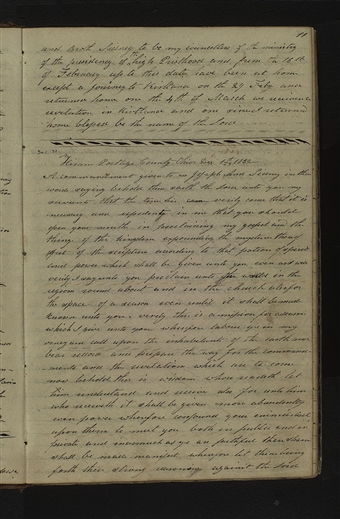 and broth Sidney to be my councillers of the ministry
of the presidency of the high Priesthood and from the 16th
of February up to this date have been at home
except a journey to Kirtland on the 29 Feby and
returned home on the 4th of March we received a
revelation in Kirtland and one since I returned
home blessed be the name of the Lord
Hiram Portage County Ohio Dec 1st 1831
A commandment given to Joseph and Sidney in this
wise saying behold thus saith the Lord unto you my
servants that the time has verily come that it is
necessary and expedient in me that you should
open your mouths in proclaiming my gospel and the
things of the kingdom expounding the mysteries thereof
out of the scriptures according to that portion of spirit
and power which shall be given unto you even as I will
verily I say unto you proclaim unto the world in the
region round about and in the church also for
the space of a season even until it shall be made
known unto you verily this is a mission for a season
which I give unto you wherefore labour ye in my
vineyard call upon the inhabitants of the earth and
bear record and prepare the way for the command
ments and the revelations which are to come
now behold this is wisdom whoso readeth let
him understand and receive also for unto him
who receiveth it shall be given more abundantly
even power wherefore confound your enemies call
upon them to meet you both in public and in
private and inasmuch as ye are faithful their shame
shall be made manifest wherefore let them bring
forth their strong reasoning against the Lord